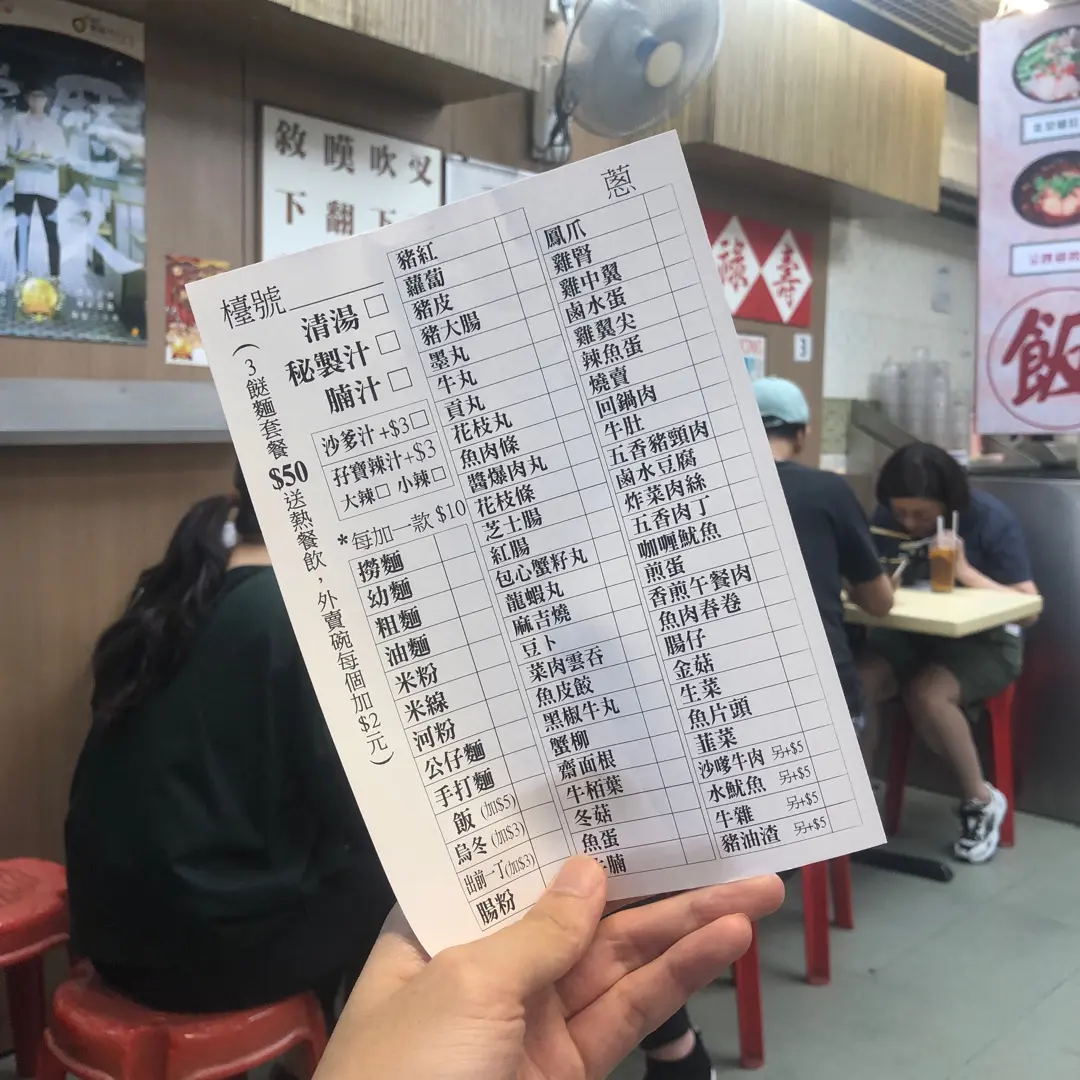 敘 嘆 吹 叉
下 翻
祿 壽
3
飯
蔥
檯號
清湯 □
秘製汁 □
腩汁 □
沙爹汁+$3□
孖寶辣汁+$3
大辣□ 小辣□
(3餸麵套餐$50送熱餐飲，外賣碗每個加$2元)
*每加一款 $10
撈麵
幼麵
粗麵
油麵
米粉
米線
河粉
公仔麵
手打麵
飯(加$5)
烏冬(加$3)
出前一丁(加$3)
腸粉
豬紅
蘿蔔
豬皮
豬大腸
墨丸
牛丸
貢丸
花枝丸
魚肉條
醬爆肉丸
花枝條
芝士腸
紅腸
包心蟹籽丸
龍蝦丸
麻吉燒
豆卜
菜肉雲吞
魚皮餃
黑椒牛丸
蟹柳
齋面根
牛栢葉
冬菇
魚蛋
腩
鳳爪
雞腎
雞中翼
鹵水蛋
雞翼尖
辣魚蛋
燒賣
回鍋肉
牛肚
五香豬頸肉
鹵水豆腐
炸菜肉絲
五香肉丁
咖喱魷魚
煎蛋
香煎午餐肉
魚肉春卷
腸仔
金菇
生菜
魚片頭
韮菜
沙嗲牛肉 另+$5
水魷魚 另+$5
牛雜 另+$5
豬油渣 另+$5